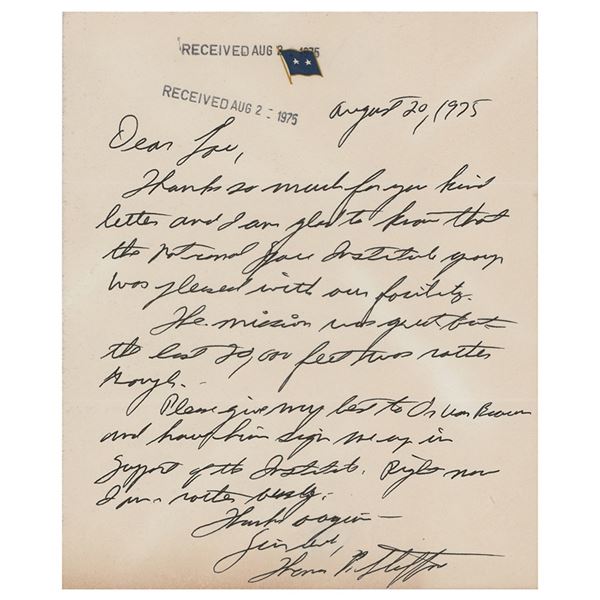 RECEIVED AUG 2 1975
RECEIVED AUG 2 1975
August 20, 1975
Dear
Thanks so much for your kind
letter and I am glad to know that
the National Space Institute group
was pleased with our facility.
The mission was great but
the last 20,000 feet was rather
rough.
Please give my best to Dr Von Braun
and have him sign me up in
support of the Institute. Right now
I am rather busy.
Thanks again —
Sincerely,
Thomas P. Stafford